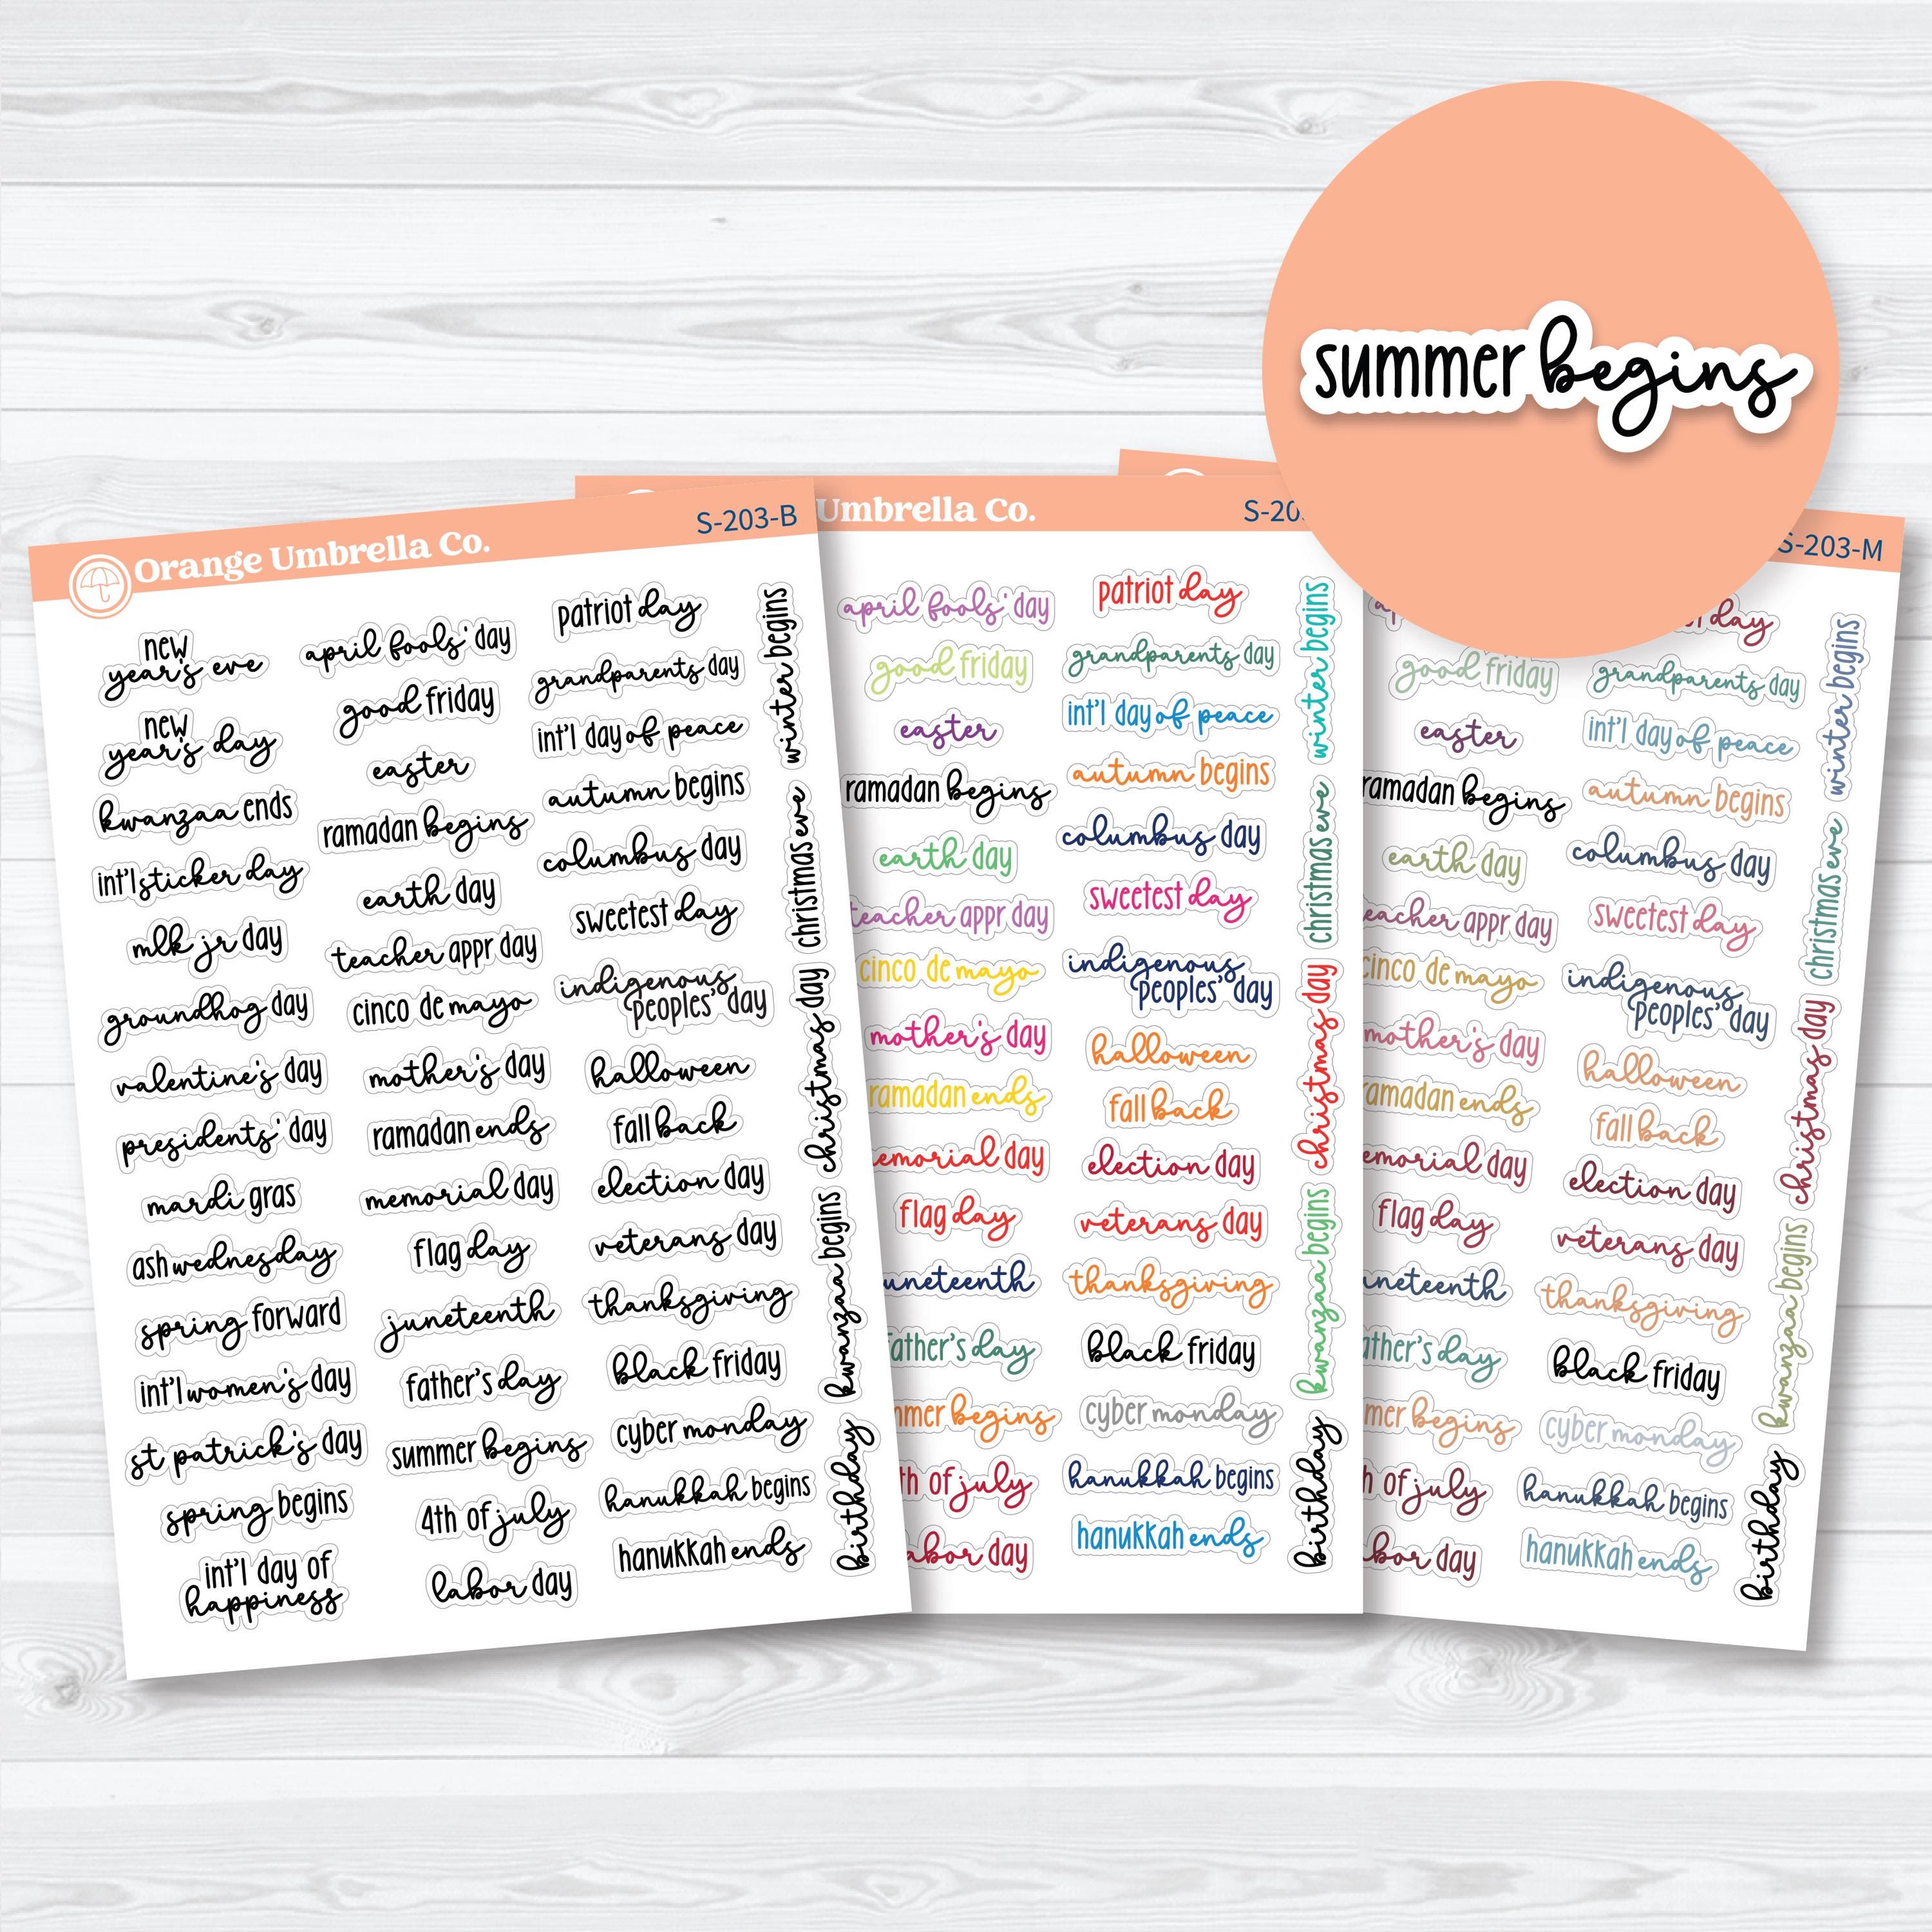 summer begins
Orange Umbrella Co.
S-203-B
new
year's eve
new
year's day
kwanzaa ends
int'l sticker day
mlk jr day
groundhog day
valentine's day
presidents' day
mardi gras
ash wednesday
spring forward
int'l women's day
st patrick's day
spring begins
int'l day of
happiness
april fools' day
good friday
easter
ramadan begins
earth day
teacher appr day
cinco de mayo
mother's day
ramadan ends
memorial day
flag day
juneteenth
father's day
summer begins
4th of july
labor day
patriot day
grandparents day
int'l day of peace
autumn begins
columbus day
sweetest day
indigenous
peoples' day
halloween
fall back
election day
veterans day
thanksgiving
black friday
cyber monday
hanukkah begins
hanukkah ends
winter begins
christmas eve
christmas day
kwanzaa begins
birthday
Umbrella Co.
S-20
april fools' day
good friday
easter
ramadan begins
earth day
teacher appr day
cinco de mayo
mother's day
ramadan ends
emorial day
flag day
uneteenth
father's day
mmer begins
th of july
labor day
patriot day
grandparents day
int'l day of peace
autumn begins
columbus day
sweetest day
indigenous
peoples' day
halloween
fall back
election day
veterans day
thanksgiving
black friday
cyber monday
hanukkah begins
hanukkah ends
winter begins
christmas eve
christmas day
kwanzaa begins
birthday
S-203-M
good friday
easter
ramadan begins
earth day
eacher appr day
cinco de mayo
mother's day
ramadan ends
emorial day
flag day
uneteenth
ather's day
mer begins
h of july
bor day
day
grandparents day
int'l day of peace
autumn begins
columbus day
sweetest day
indigenous
peoples' day
halloween
fall back
election day
veterans day
thanksgiving
black friday
cyber monday
hanukkah begins
hanukkah ends
winter begins
christmas eve
christmas day
kwanzaa begins
birthday